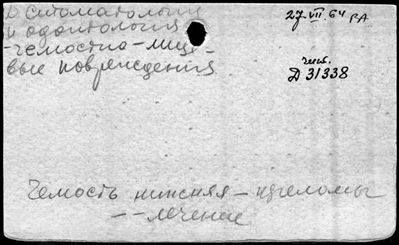 D стоматология
и одонтология
-челюстно-лице-
вые повреждения
27 VII. 64 РА
чит.
Д 31338
Челюсть нижняя - переломы
- - лечение